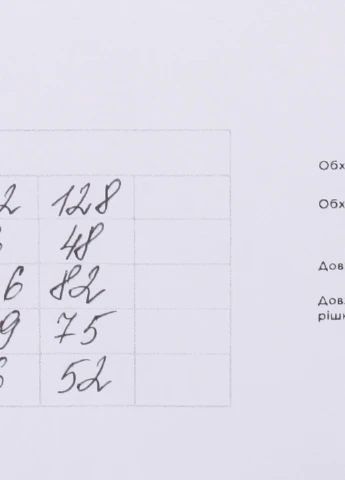 2 128
48
6 82
9 75
52
Обх
Обх
Дов
Дов.
рішн